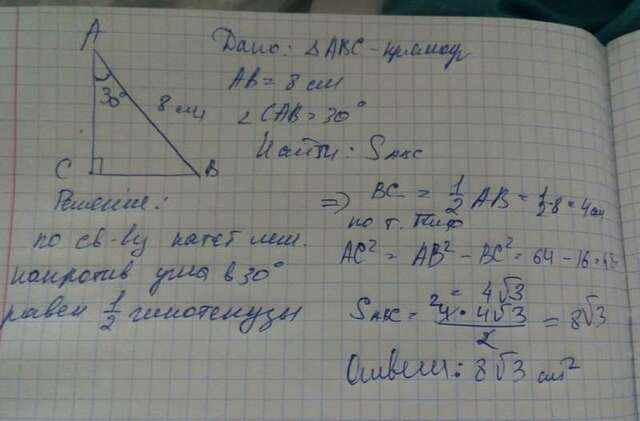 A
30°
8 см
C
B
Дано: △ABC - прямоуг
AB = 8 см
∠CAB = 30°
Найти: S ABC
Решение:
по св-ву катет леж.
напротив угла в 30°
равен 1/2 гипотенузы
=> BC = 1/2 AB = 1/2·8 = 4см
по т. Пиф
AC² = AB² - BC² = 64 - 16 = 48
= 4√3
S ABC = 4 · 4√3 / 2 = 8√3
Ответ: 8√3 см²